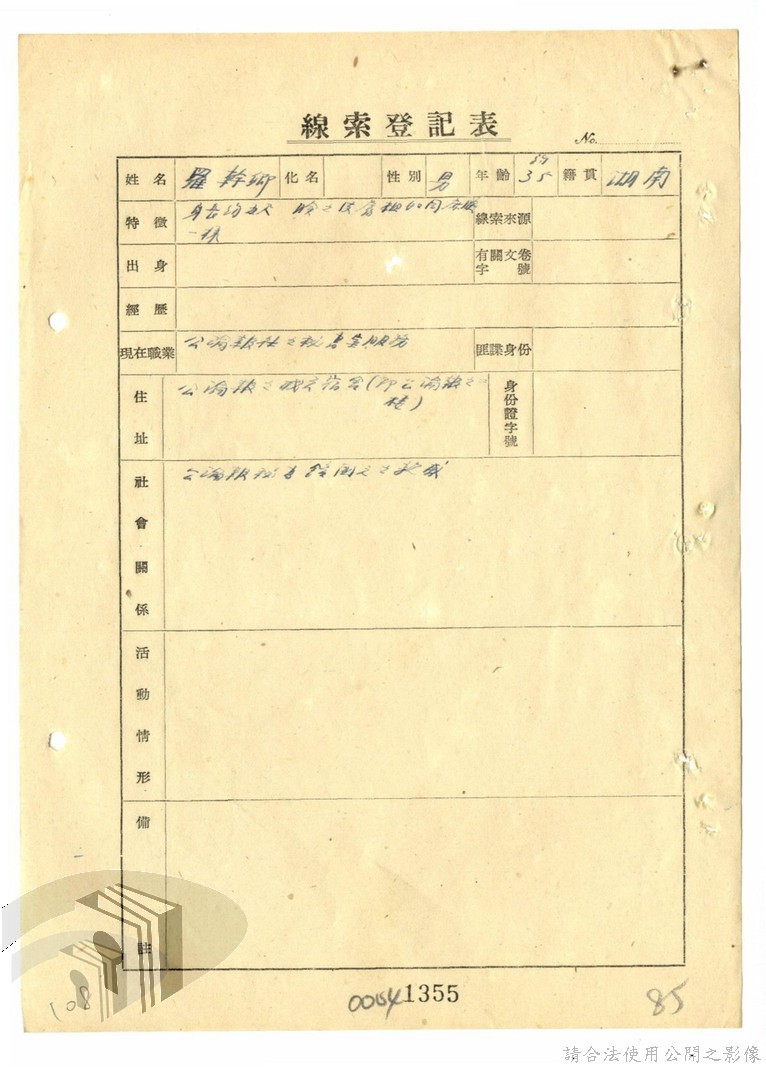 線索登記表
No.
姓名 羅幹卿 化名 性別 男 年齡 35 籍貫 湖南
特徵 身長約五尺 線索來源
一樣
出身 有關文卷字號
經歷
現在職業 公論報社之秘書室服務 匪諜身份
住址 公論報之職員宿舍(即公論報之二樓) 身份證字號
社會關係 公論報秘書
活動情形
備註
108
00541355
85
請合法使用公開之影像